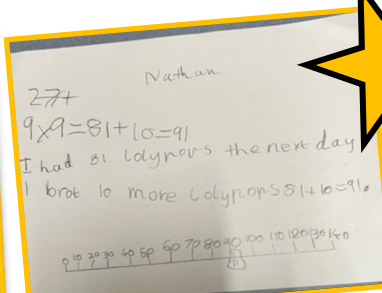 Nathan
27+
9x9=81+10=91
I had 81 lolypops the next day
I brot 10 more lolypops 81+10=91.
0 10 20 30 40 50 60 70 80 90 100 110 120 130 140